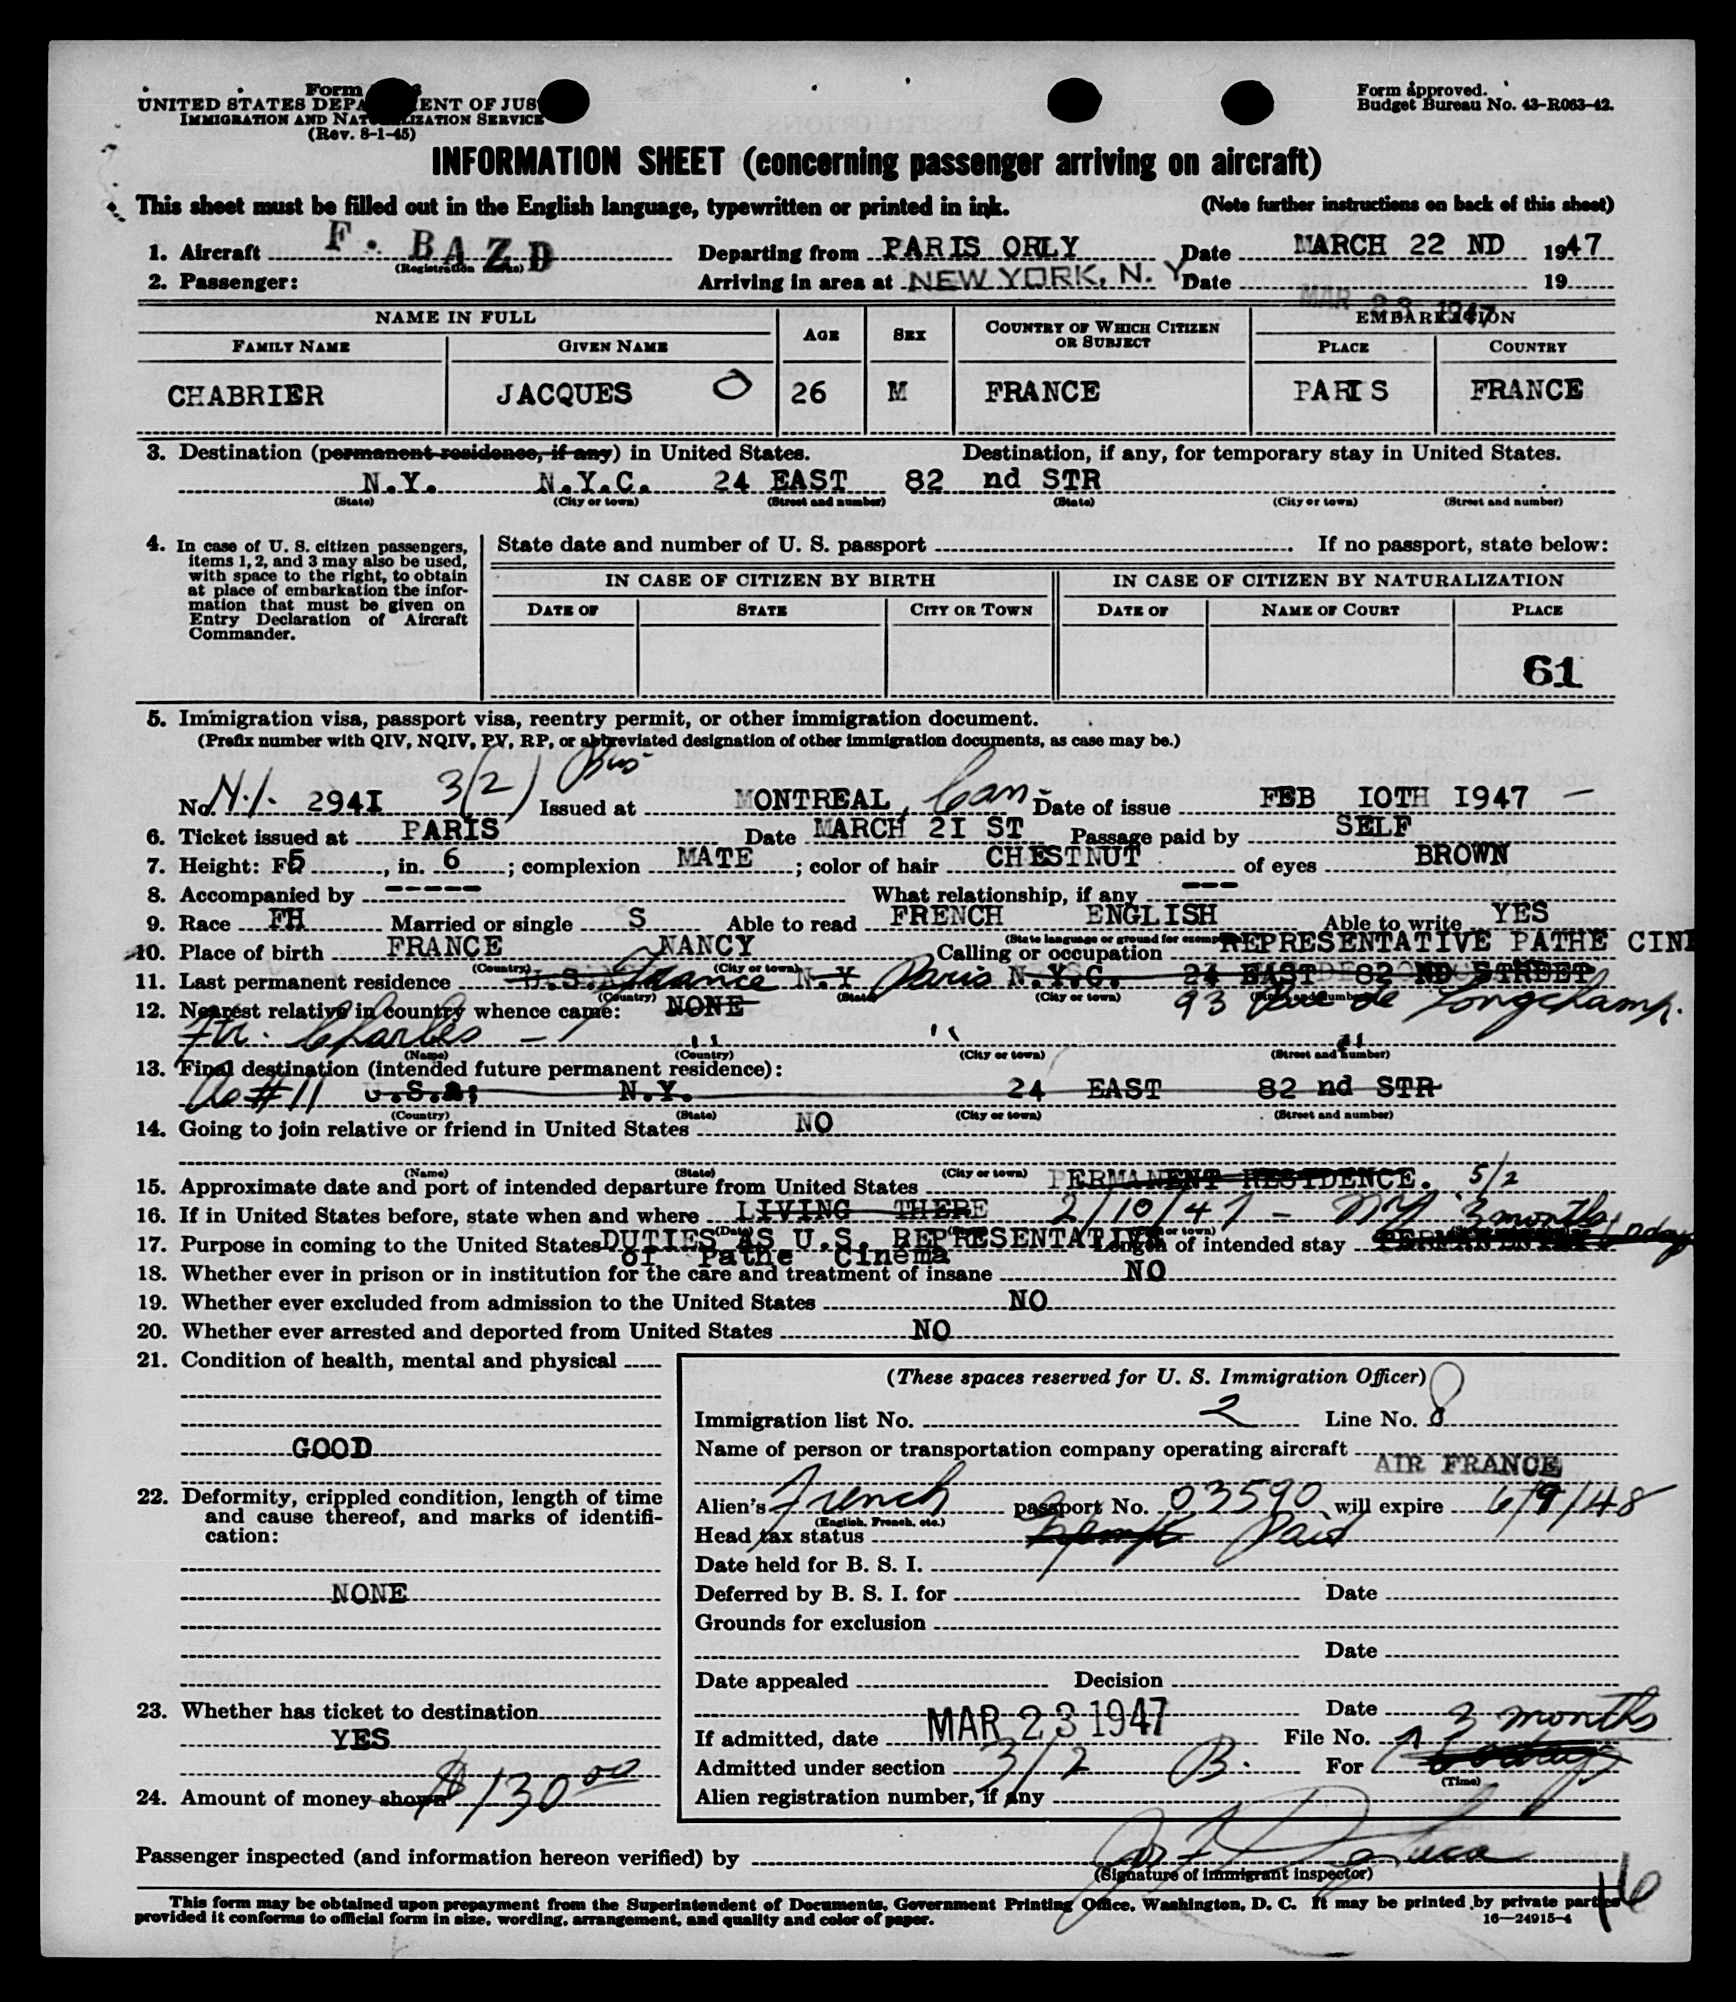 Form
UNITED STATES DEPA ENT OF JUS
IMMIGRATION AND NAT LIZATION SERVICE
(Rev. 8-1-45)
Form approved.
Budget Bureau No. 43-R063-42.
INFORMATION SHEET (concerning passenger arriving on aircraft)
This sheet must be filled out in the English language, typewritten or printed in ink. (Note further instructions on back of this sheet)
1. Aircraft F. BAZD Departing from PARIS ORLY Date MARCH 22 ND 1947
(Registration marks)
2. Passenger: Arriving in area at NEW YORK, N. Y. Date MAR 23 1947 19
NAME IN FULL AGE SEX COUNTRY OF WHICH CITIZEN OR SUBJECT EMBARKATION
FAMILY NAME GIVEN NAME PLACE COUNTRY
CHABRIER JACQUES O 26 M FRANCE PARIS FRANCE
3. Destination (permanent residence, if any) in United States. Destination, if any, for temporary stay in United States.
N.Y. N.Y.C. 24 EAST 82 nd STR
(State) (City or town) (Street and number) (State) (City or town) (Street and number)
4. In case of U. S. citizen passengers, items 1, 2, and 3 may also be used, with space to the right, to obtain at place of embarkation the information that must be given on Entry Declaration of Aircraft Commander.
State date and number of U. S. passport . If no passport, state below:
IN CASE OF CITIZEN BY BIRTH IN CASE OF CITIZEN BY NATURALIZATION
DATE OF STATE CITY OR TOWN DATE OF NAME OF COURT PLACE
61
5. Immigration visa, passport visa, reentry permit, or other immigration document.
(Prefix number with QIV, NQIV, PV, RP, or abbreviated designation of other immigration documents, as case may be.)
No. N.I. 294I 3(2) Bus Issued at MONTREAL, Can- Date of issue FEB IOTH I947 -
6. Ticket issued at PARIS Date MARCH 2I ST Passage paid by SELF
7. Height: Ft 5, in. 6; complexion MATE; color of hair CHESTNUT of eyes BROWN
8. Accompanied by ----- What relationship, if any ---
9. Race FH Married or single S Able to read FRENCH ENGLISH Able to write YES
(State language or ground for exemption)
10. Place of birth FRANCE NANCY Calling or occupation REPRESENTATIVE PATHE CINE
(Country) (City or town)
11. Last permanent residence U.S.A. France N.Y Paris N.Y.C. 24 EAST 82 ND STREET
(Country) (State) (City or town) (Street and number)
12. Nearest relative in country whence came: NONE 93 Rue de Longchamp.
Fr. Charles - " " "
(Name) (Country) (City or town) (Street and number)
13. Final destination (intended future permanent residence):
As #11 U.S.A; N.Y. 24 EAST 82 nd STR
(Country) (State) (City or town) (Street and number)
14. Going to join relative or friend in United States NO
(Name) (State) (City or town)
15. Approximate date and port of intended departure from United States PERMANENT RESIDENCE. 5/2
16. If in United States before, state when and where LIVING THERE 2/10/47 - NY 3 months
17. Purpose in coming to the United States DUTIES AS U.S. REPRESENTATIVE Length of intended stay PERMANENTLY
of Pathe Cinema
18. Whether ever in prison or in institution for the care and treatment of insane NO
19. Whether ever excluded from admission to the United States NO
20. Whether ever arrested and deported from United States NO
21. Condition of health, mental and physical
GOOD
22. Deformity, crippled condition, length of time and cause thereof, and marks of identification:
NONE
23. Whether has ticket to destination
YES
24. Amount of money shown $130 00
(These spaces reserved for U. S. Immigration Officer)
Immigration list No. 2 Line No. 8
Name of person or transportation company operating aircraft
AIR FRANCE
Alien's French passport No. 03590 will expire 6/9/48
(English, French, etc.)
Head tax status Exempt Paid
Date held for B. S. I.
Deferred by B. S. I. for Date
Grounds for exclusion
Date
Date appealed Decision
Date
If admitted, date MAR 23 1947 File No. 3 months
Admitted under section 3/2 B. For
(Time)
Alien registration number, if any
Passenger inspected (and information hereon verified) by
(Signature of immigrant inspector)
16
This form may be obtained upon prepayment from the Superintendent of Documents, Government Printing Office, Washington, D. C. It may be printed by private parties
provided it conforms to official form in size, wording, arrangement, and quality and color of paper.
16—24915-4